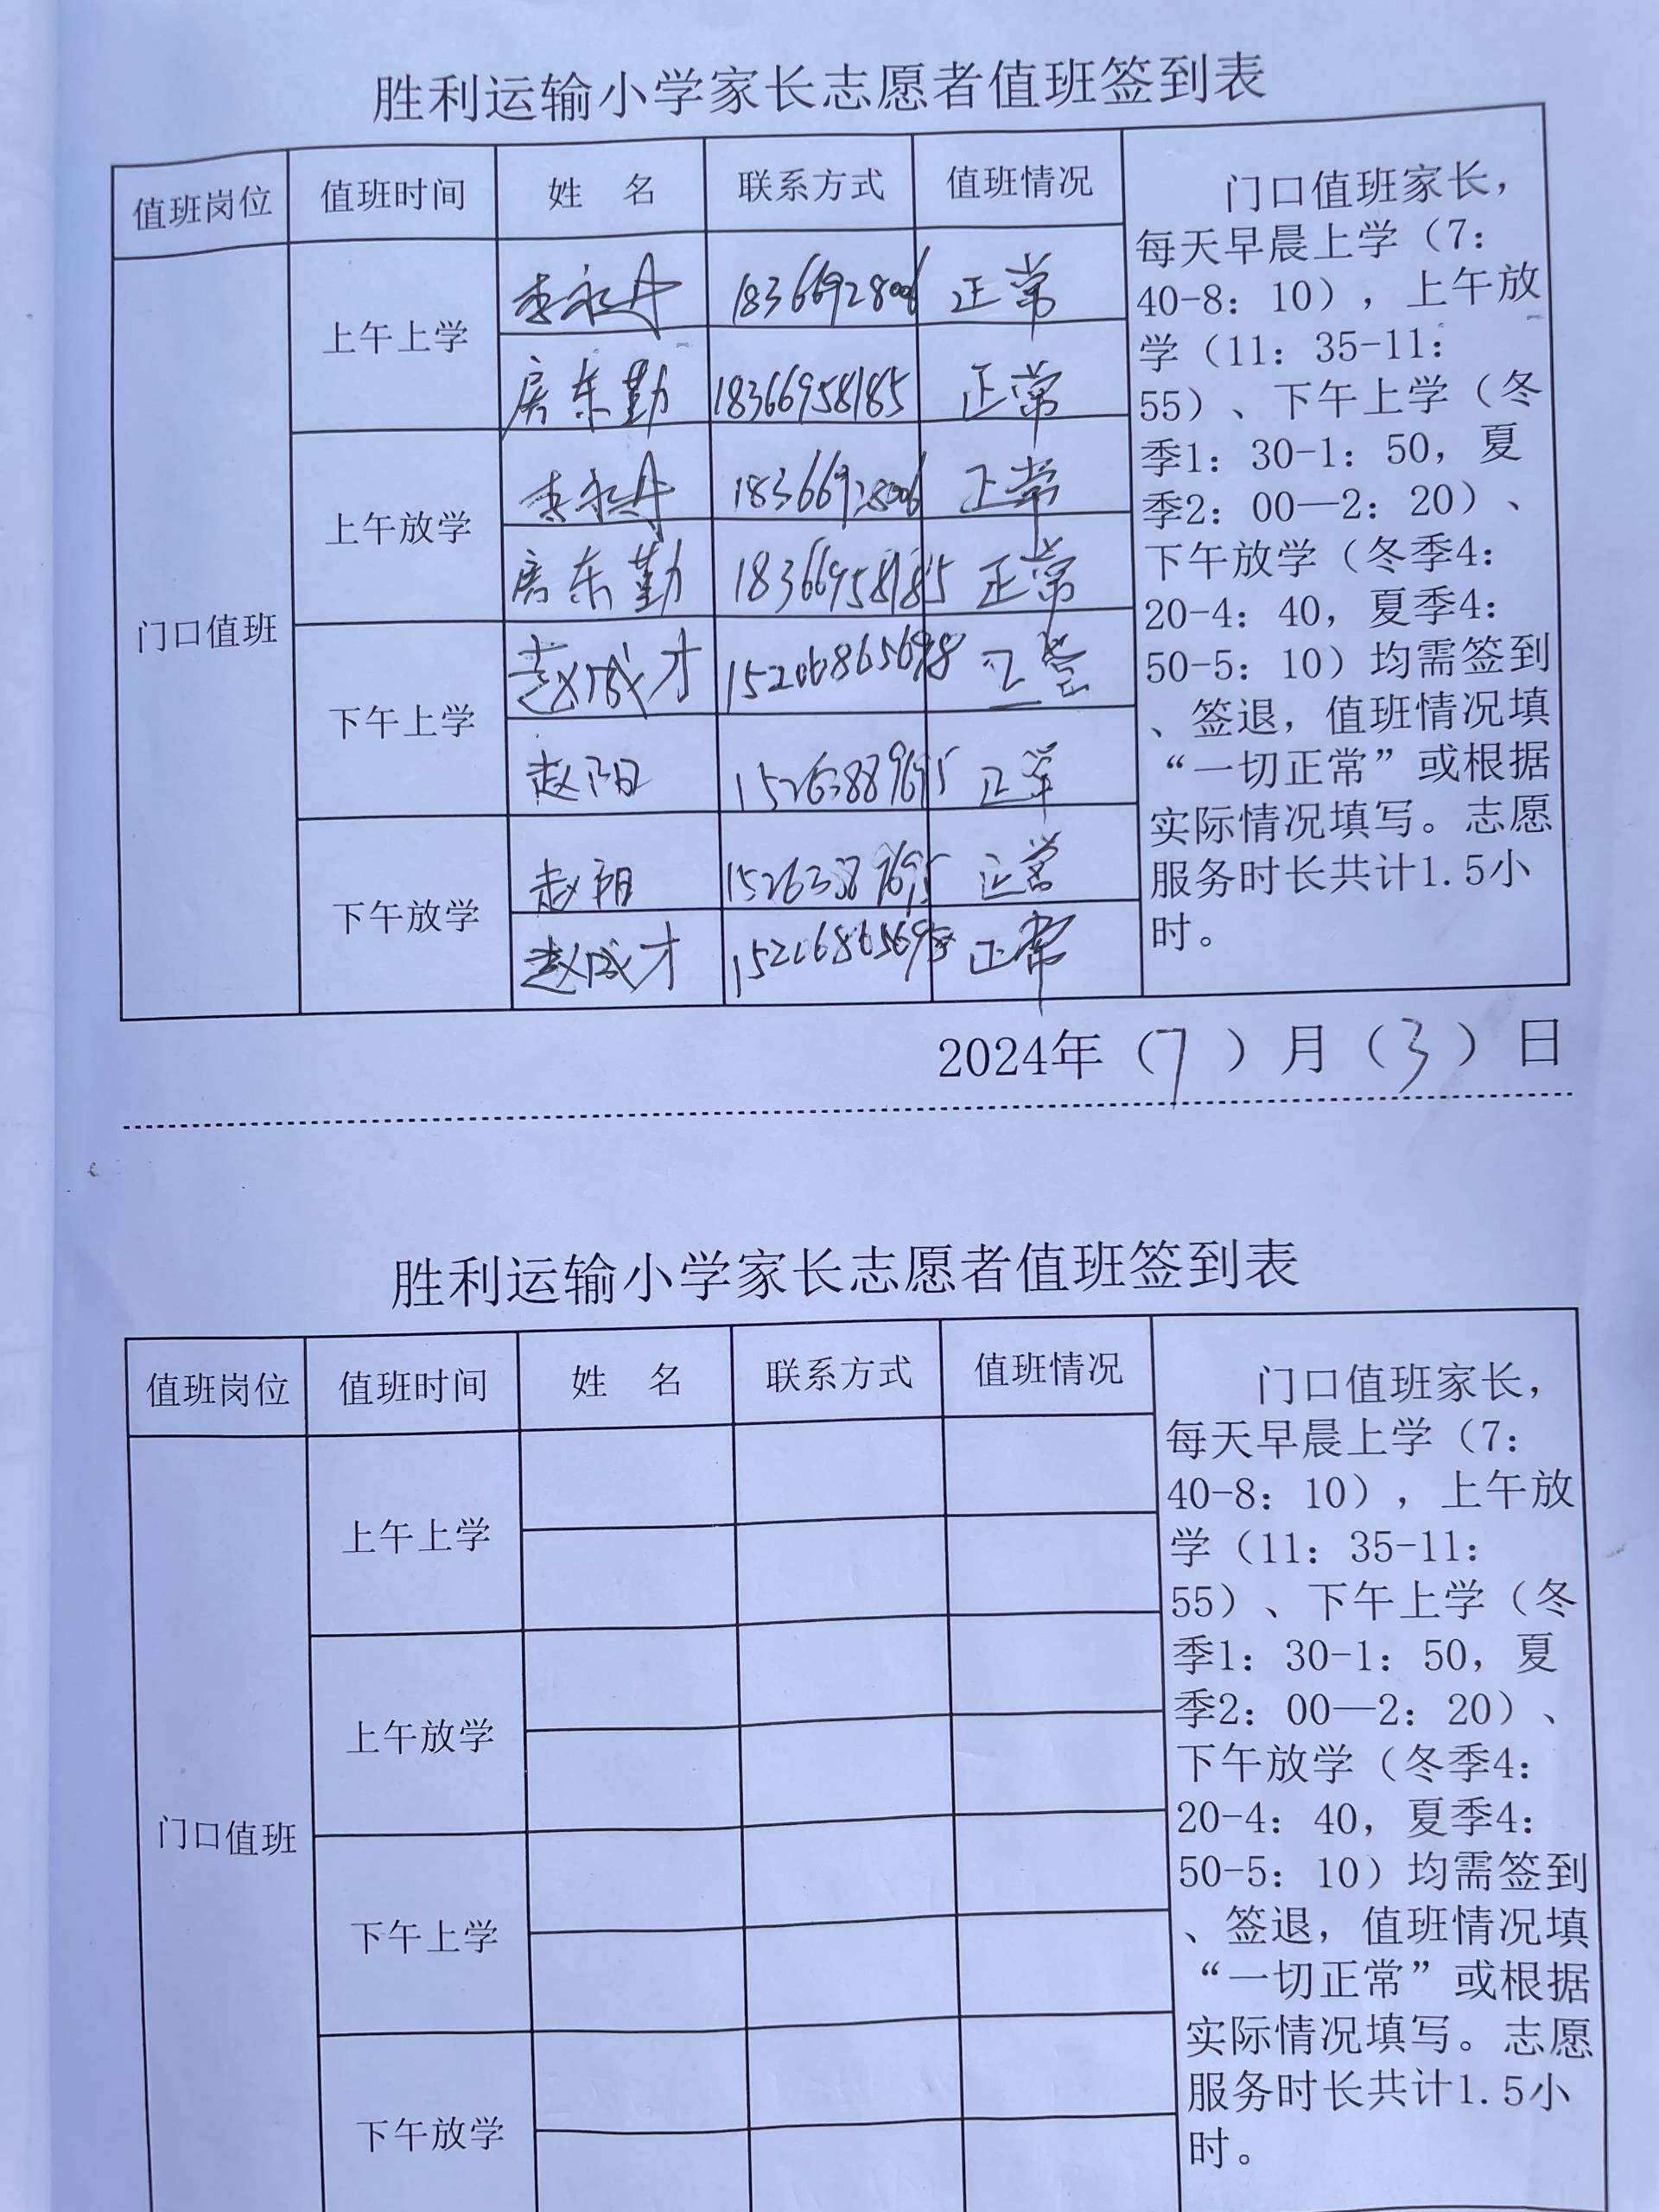 胜利运输小学家长志愿者值班签到表
值班岗位 值班时间 姓 名 联系方式 值班情况
门口值班
上午上学
李永丹 18366928006 正常
房东勤 18366958185 正常
上午放学
李永丹 18366928006 正常
房东勤 18366958185 正常
下午上学
赵成才 正常
赵阳 15263889695 正常
下午放学
赵阳 正常
赵成才 正常
门口值班家长，
每天早晨上学（7：
40-8：10），上午放
学（11：35-11：
55）、下午上学（冬
季1：30-1：50，夏
季2：00—2：20）、
下午放学（冬季4：
20-4：40，夏季4：
50-5：10）均需签到
、签退，值班情况填
“一切正常”或根据
实际情况填写。志愿
服务时长共计1.5小
时。
2024年（7）月（3）日
胜利运输小学家长志愿者值班签到表
值班岗位 值班时间 姓 名 联系方式 值班情况
门口值班
上午上学
上午放学
下午上学
下午放学
门口值班家长，
每天早晨上学（7：
40-8：10），上午放
学（11：35-11：
55）、下午上学（冬
季1：30-1：50，夏
季2：00—2：20）、
下午放学（冬季4：
20-4：40，夏季4：
50-5：10）均需签到
、签退，值班情况填
“一切正常”或根据
实际情况填写。志愿
服务时长共计1.5小
时。